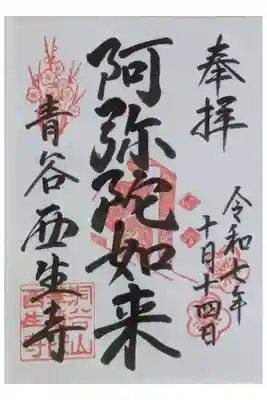 奉拝
令和七年
十月十四日
阿弥陀如来
青谷西生寺